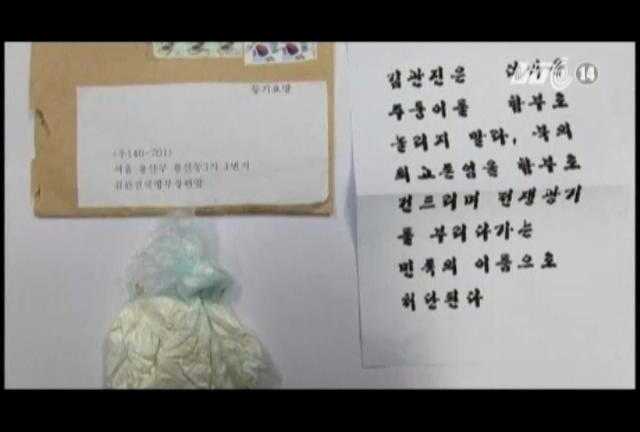 VTC 14
등기요망
(우140-701)
서울 용산구 용산동3가 1번지
김관진국방부장관앞
김관진은
주둥이를 함부로
놀리지 말라, 북의
최고존엄을 함부로
건드리며 전쟁광기
를 부리다가는
민족의 이름으로
처단된다